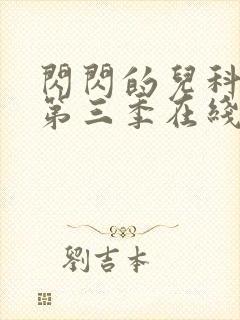 閃閃的兒科
第三季在綫
劉吉本